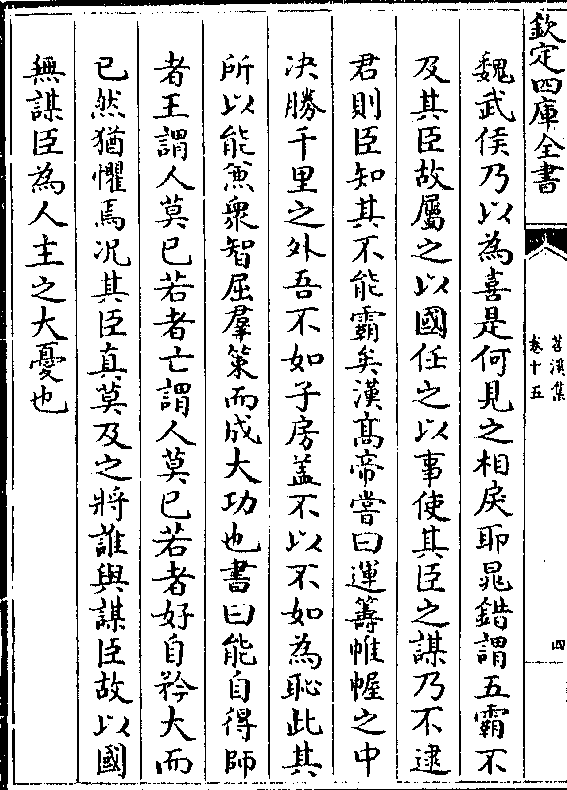 欽定四庫全書
苕溪集
卷十五
四
魏武侯乃以為喜是何見之相戾耶鼂錯謂五霸不
及其臣故屬之以國任之以事使其臣之謀乃不逮
君則臣知其不能霸矣漢髙帝嘗曰運籌帷幄之中
決勝千里之外吾不如子房盖不以不如為恥此其
所以能兼衆智屈羣策而成大功也書曰能自得師
者王謂人莫已若者亡謂人莫已若者好自矜大而
已然猶懼焉况其臣真莫及之將誰與謀臣故以國
無謀臣為人主之大憂也